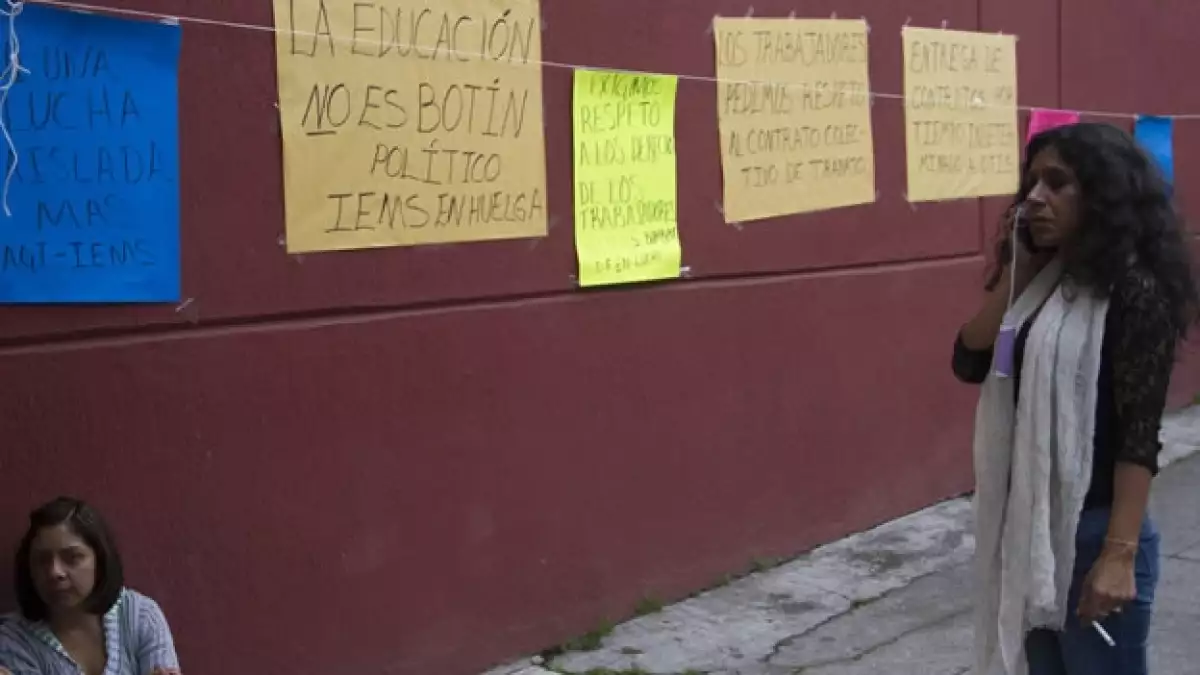 UNA
LUCHA
AISLADA
MAS
LA EDUCACIÓN
NO ES BOTÍN
POLÍTICO
IEMS EN HUELGA
EXIGIMOS
RESPETO
A LOS
DE LOS
TRABAJADORES
LOS TRABAJADORES
PEDIMOS RESPETO
AL CONTRATO COLEC-
TIVO DE TRABAJO
ENTREGA DE
CONTRATOS POR
TIEMPO